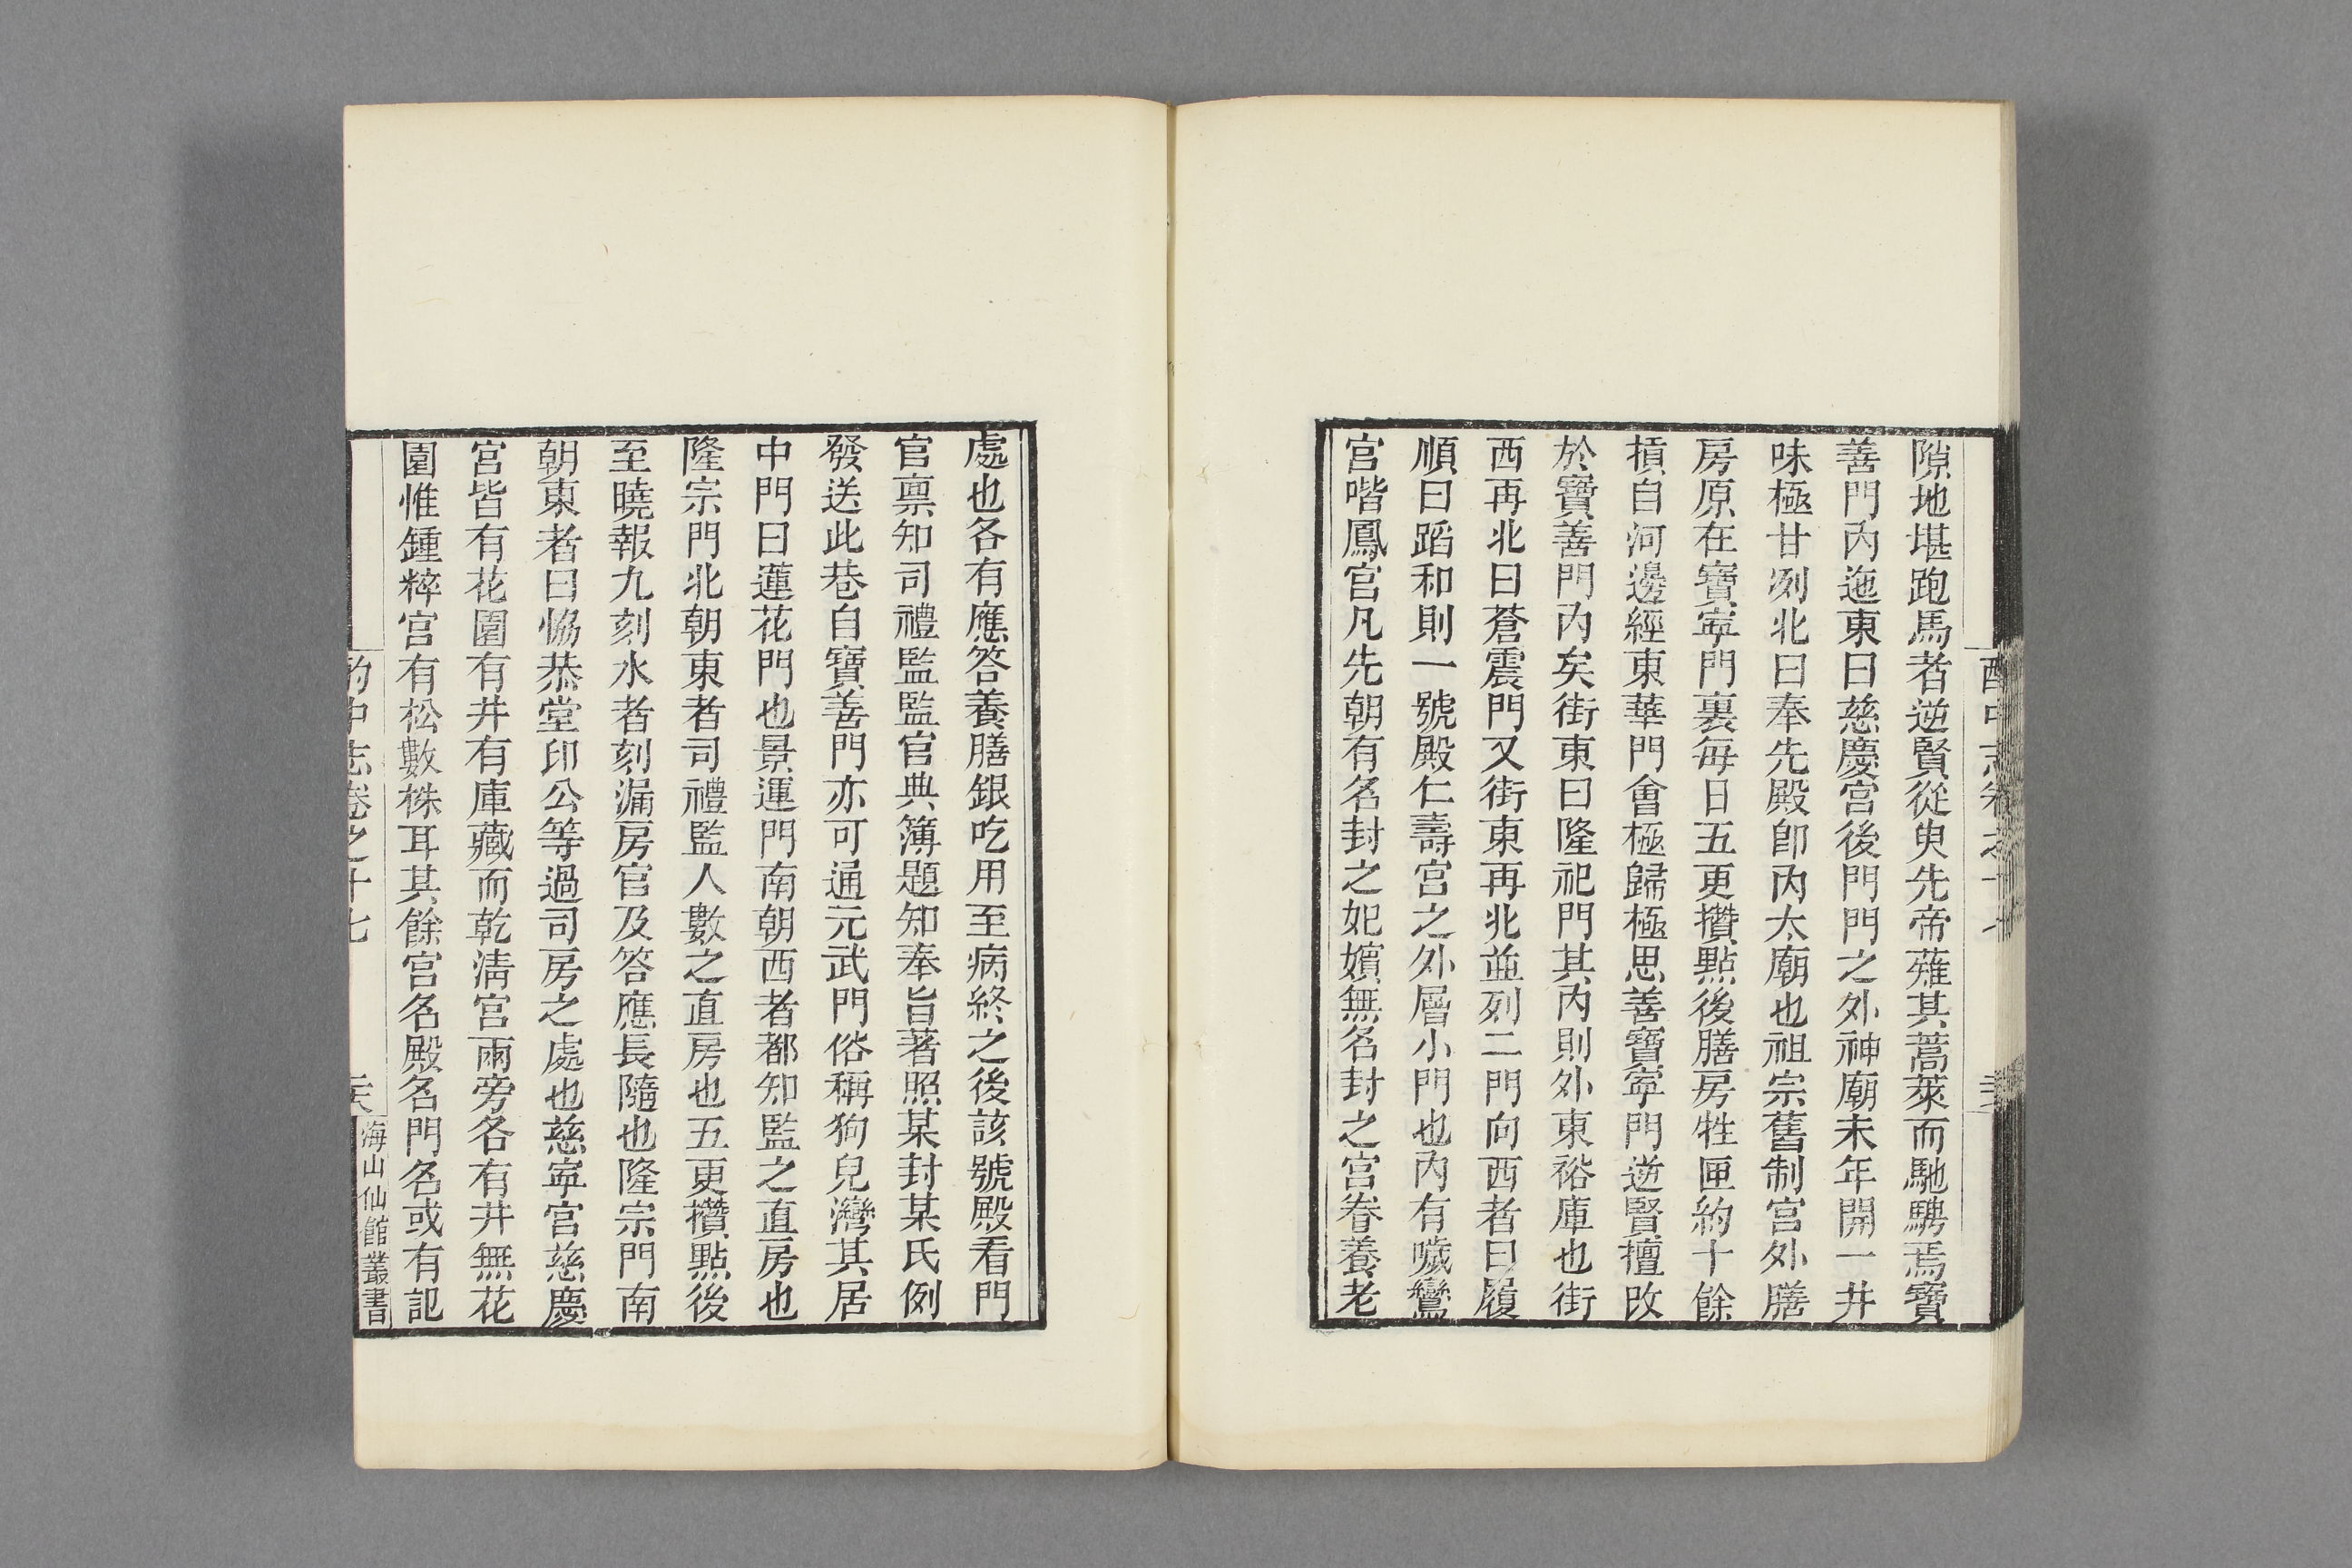 隙地堪跑馬者逆賢從臾先帝薙其蒿萊而馳騁焉寶
善門內迤東曰慈慶宮後門門之外神廟末年開一井
味極甘冽北曰奉先殿卽內太廟也祖宗舊制宮外膳
房原在寶寧門裏每日五更攢點後膳房牲匣約十餘
摃自河邊經東華門會極歸極思善寶寧門逆賢擅改
於寶善門內矣街東曰隆祀門其內則外東裕庫也街
西再北曰蒼震門又街東再北並列二門向西者曰履
順曰蹈和則一號殿仁壽宮之外層小門也內有噦鸞
宮喈鳳宮凡先朝有名封之妃嬪無名封之宮眷養老
處也各有應答養膳銀吃用至病終之後該號殿看門
官禀知司禮監監官典簿題知奉旨著照某封某氏例
發送此巷自寶善門亦可通元武門俗稱狗兒灣其居
中門曰蓮花門也景運門南朝西者都知監之直房也
隆宗門北朝東者司禮監人數之直房也五更攢點後
至曉報九刻水者刻漏房官及答應長隨也隆宗門南
朝東者曰恊恭堂印公等過司房之處也慈寧宮慈慶
宮皆有花園有井有庫藏而乾淸宮兩旁各有井無花
園惟鍾粹宮有松數株耳其餘宮名殿名門名或有記
酌中志卷之十七
海山仙館叢書